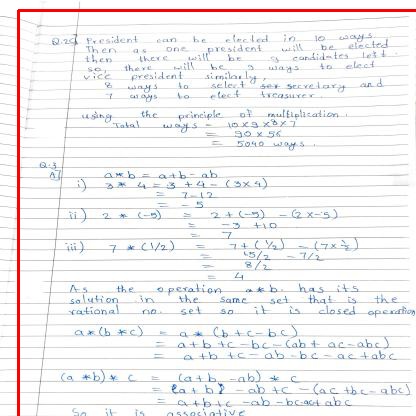 Q.2 c] President can be elected in 10 ways.
Then as one president will be elected
then there will be 9 candidates left
so there will be 9 ways to elect
vice president similarly,
8 ways to select secretary and
7 ways to elect treasurer.
using the principle of multiplication.
Total ways = 10 x 9 x 8 x 7
= 90 x 56
= 5040 ways.
Q.3
A] a*b = a+b-ab
i) 3 * 4 = 3 + 4 - (3x4)
= 7-12
= -5
ii) 2 * (-5) = 2 + (-5) - (2x-5)
= -3 +10
= 7
iii) 7 * (1/2) = 7 + (1/2) - (7x1/2)
= 15/2 - 7/2
= 8/2
= 4
As the operation a*b. has its
solution in the same set that is the
rational no. set so it is closed operation
a*(b*c) = a* (b+c-bc)
= a+b+c-bc-(ab+ac-abc)
= a+b+c-ab-bc-ac+abc
(a*b)*c = (a+b-ab) * c
= (a+b) - ab+c-(ac+bc-abc)
= a+b+c-ab-bc-ac+abc
So it is associative